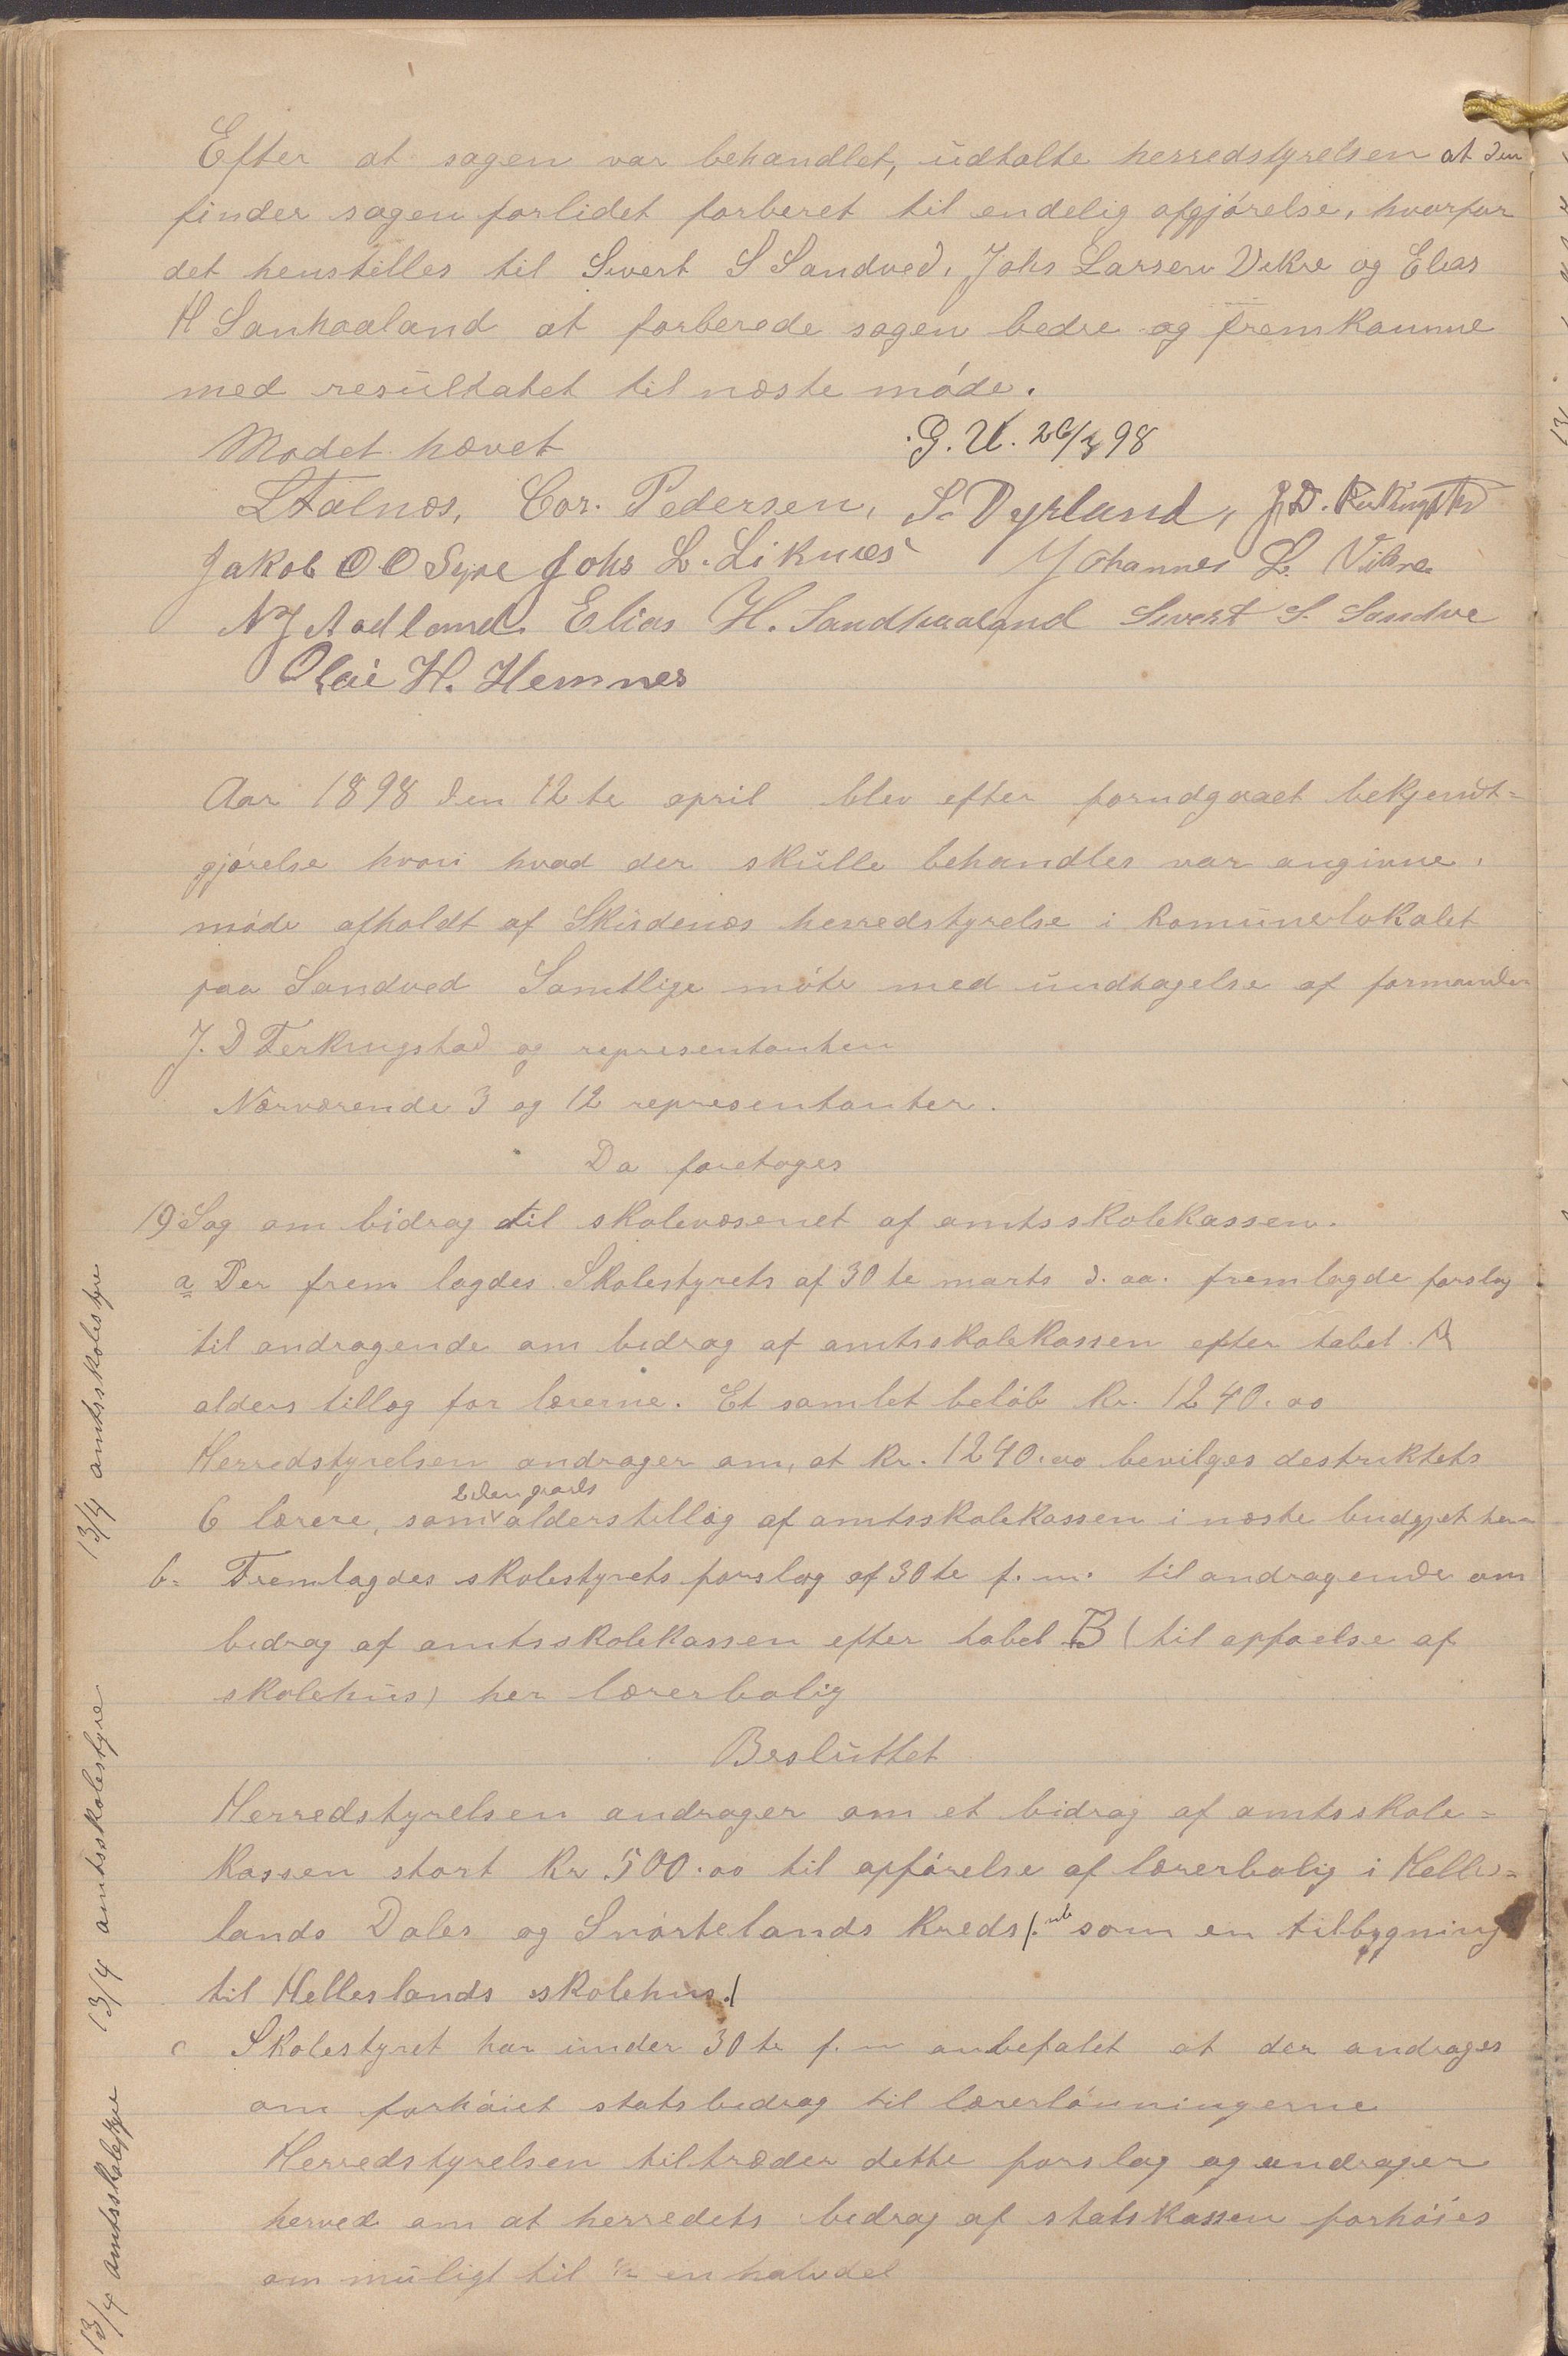 Efter at sagen var behandlet, udtalte herredstyrelsen at den
finder sagen forlidet forberet til endelig afgjørelse, hvorfor
det henstilles til Sivert S Sandved, Johs Larsen Vikre og Elias
H Sanhaaland at forberede sagen bedre og fremkomme
med resultatet til næste møde.
Mødet hævet
G. U. 26/3 98
L Falnæs, Cor. Pedersen, S. Dyrland, J. D. Ferkingstad
Jakob O O Syre Johs L. Liknæs Johannes L. Vikre
N J Aadland. Elias H. Sandhaaland Sivert S. Sandve
Olai H. Hemnes
Aar 1898 den 12te april blev efter forudgaaet bekjendt=
gjørelse hvori hvad der skulle behandles var angivne,
møde afholdt af Skudenæs herredstyrelse i Komunelokalet
paa Sandved Samtlige møte med undtagelse af formanden
J. D Ferkingstad og representanten
Nærværende 3 og 12 representanter.
Da foretoges
19) Sag om bidrag til skolevæsenet af amtsskolekassen.
a Der frem lagdes Skolestyrets af 30te marts d. aa. fremlagde forslag
til andragende om bidrag af amtsskolekassen efter tabel A
alders tillæg for lærerne. Et samlet beløb kr. 1240.00
Herredstyrelsen andrager om, at kr. 1240.00 bevilges destriktets
2den grads
6 lærere, som alderstillæg af amtsskolekassen i næste budgjet
b= Fremlagdes skolestyrets forslag af 30te f. m. til andragende om
bidrag af amtsskolekassen efter tabel B (til opførelse af
skolehus) her lærerbolig
Besluttet
Herredstyrelsen andrager om et bidrag af amtsskole=
kassen stort kr. 500.00 til opførelse af lærerbolig i Helles=
lands Dales og Snørtelands kreds /: som en tilbygning
til Helleslands skolehus./
c Skolestyret har under 30te f. m anbefalet at der andrages
om forhøiet statsbidrag til lærerlønningerne
Herredstyrelsen tiltræder dette forslag og andrager
herved om at herredets bidrag af statskassen forhøies
om muligt til ½ en halvdel
13/4 amtsskolestyre
13/4 amtsskolestyre
13/4 amtsskolestyre